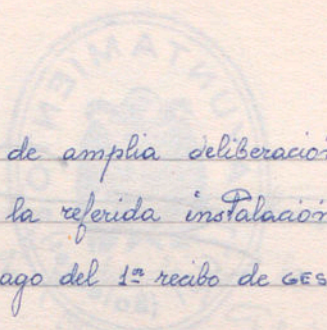 AYUNTAMIENTO
de amplia deliberación
la referida instalación
ago del 1er recibo de GES